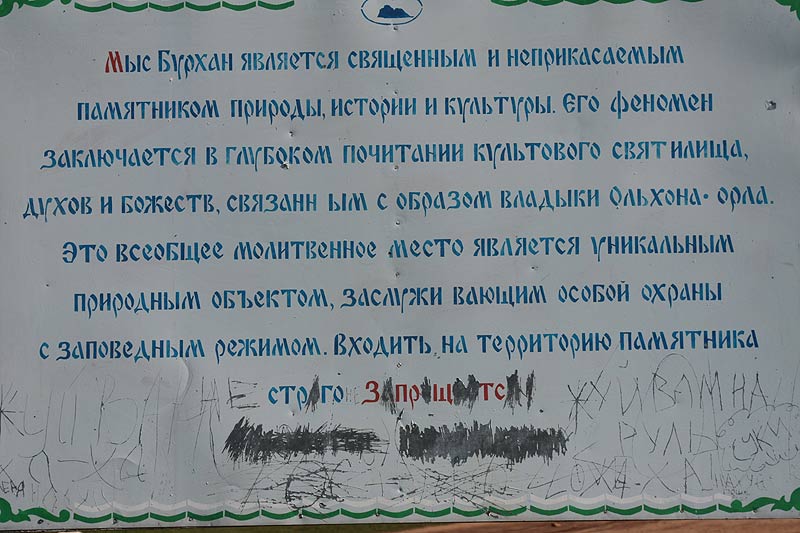 Мыс Бурхан является священным и неприкасаемым
памятником природы, истории и культуры. Его феномен
заключается в глубоком почитании культового святилища,
духов и божеств, связанным с образом владыки Ольхона- орла.
Это всеобщее молитвенное место является уникальным
природным объектом, заслуживающим особой охраны
с заповедным режимом. Входить на территорию памятника
строго запрещается
ХУЙ ВАМ НА
РУЛЬ
СУКИ